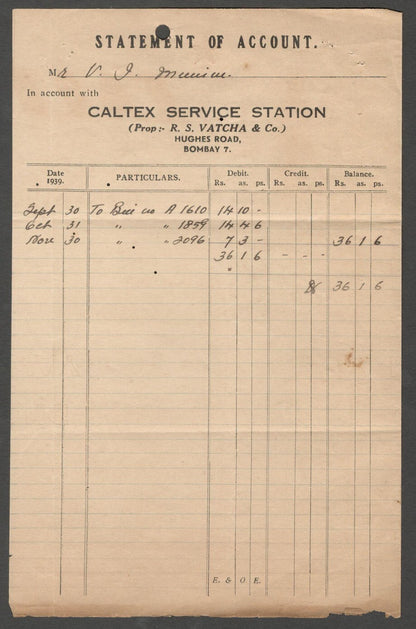 STATEMENT OF ACCOUNT.
Mr V. J.
In account with
CALTEX SERVICE STATION
(Prop:- R. S. VATCHA & Co.)
HUGHES ROAD,
BOMBAY 7.
Date 1939. PARTICULARS. Debit. Rs. as. ps. Credit. Rs. as. ps. Balance. Rs. as. ps.
Sept 30 To Bill no A 1610 14 10 -
Oct 31 " " 1859 14 4 6
Nov 30 " " 2096 7 3 - 36 1 6
36 1 6 - - -
36 1 6
E. & O. E.